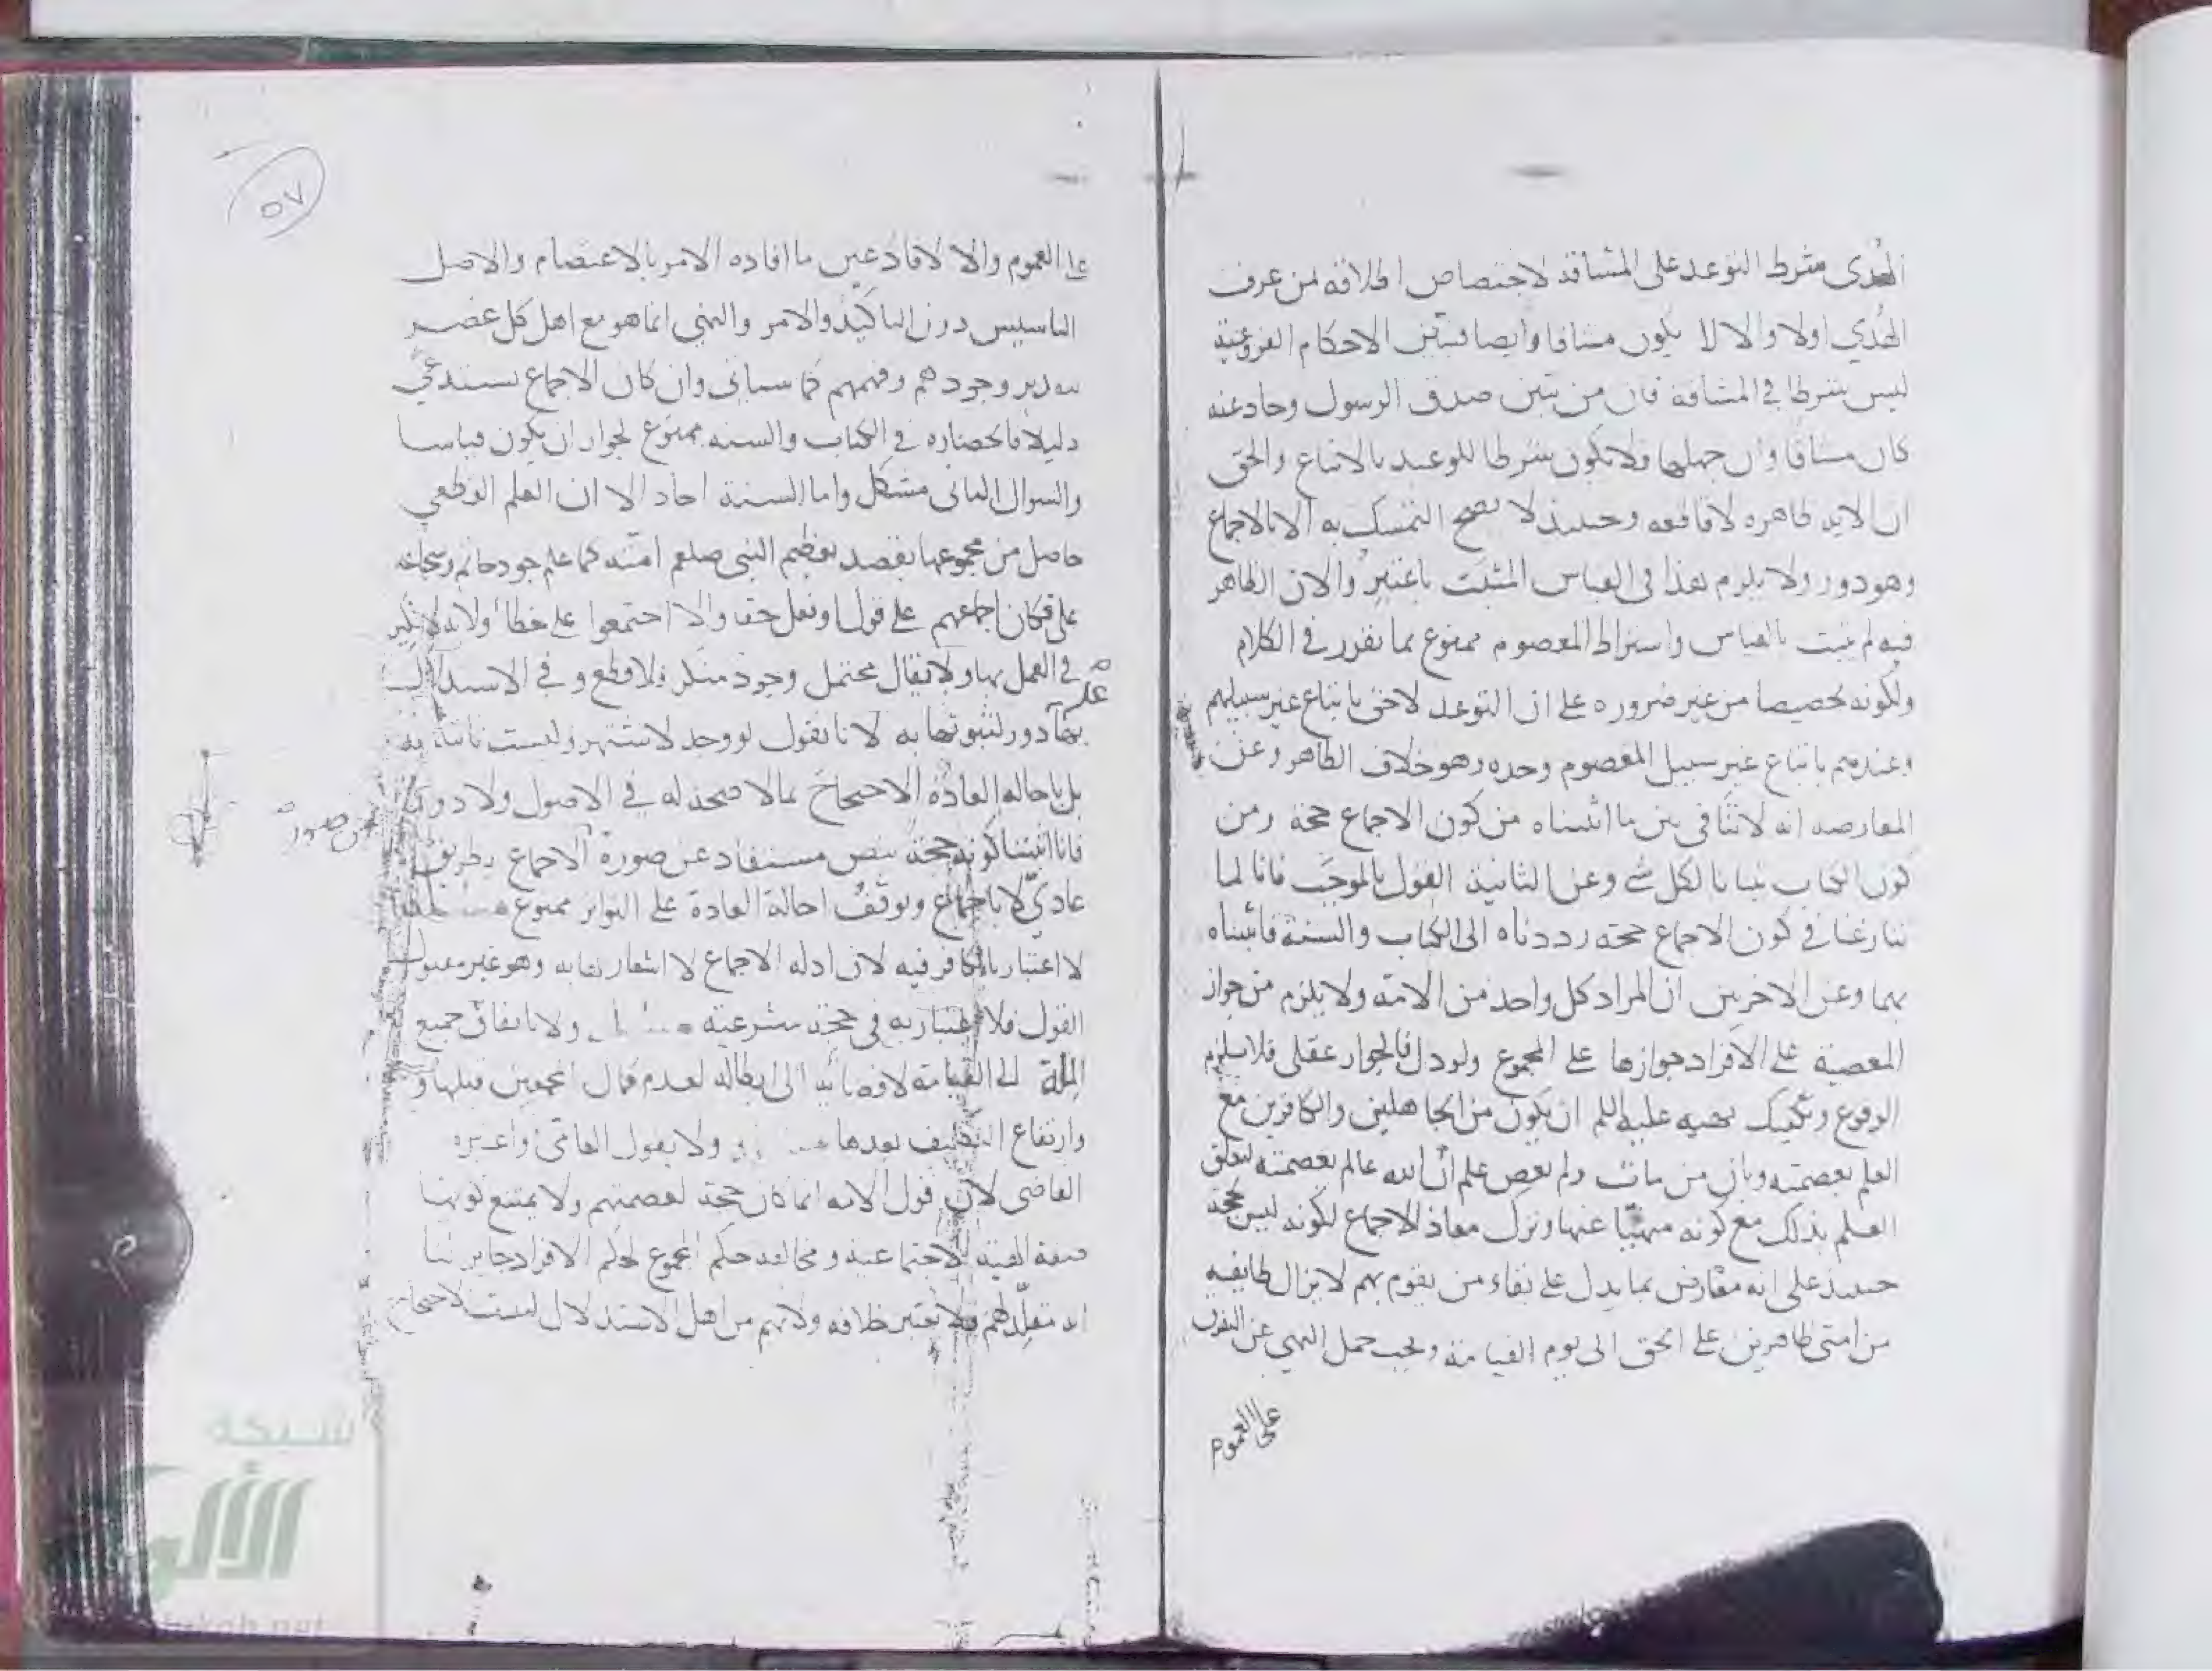 الهدى شرط التوعد على المشاقة لاختصاص اطلاقه من عرف
الهُدي اولا والا لا يكون مشاقا وايضا فتبين الاحكام الفروعية
ليس شرطا في المشاقة فان من تبين صدق الرسول وحاد عنه
كان مشاقا وان جهلها فلا تكون شرطا للوعيد بالاتباع والحق
ان الايه ظاهره لا قاطعه وحينئذ لا يصح التمسك به الا بالاجماع
وهو دور ولا يلزم هذا في القياس المثبت والان الظاهر
فيه لم يثبت بالقياس واشتراط المعصوم ممنوع بما تقرر في الكلام
ولكونه تخصيصا من غير ضروره على ان التوعد لاحق باتباع غير سبيلهم
وعندهم باتباع غير سبيل المعصوم وحده وهو خلاف الظاهر وعن
المعارضه انه لا تنافي بين ما اثبتناه من كون الاجماع حجة ومن
كون الكتاب تبيانا لكل شي وعن الثانية القول بالموجَب فانا لما
تنازعنا في كون الاجماع حجته رددناه الى الكتاب والسنة فاثبتناه
بهما وعن الاخرين ان المراد كل واحد من الامة ولا يلزم من جواز
المعصية على الافراد جوازها على المجموع ولو دل فالجواز عقلي فلا يستلزم
الوقوع نهيه عليه السلم ان يكون من الجاهلين والكافرين مع
العلم بعصمته وبان من مات ولم يعص علم ان الله عالم بعصمته لتعلق
العلم بذلك مع كونه منهيّا عنها وترك معاذ الاجماع لكونه ليس بحجة
حينئذ على انه معارض بما يدل على بقاء من يقوم بهم لا يزال طايفه
من امتى ظاهرين على الحق الى يوم القيامة ويجب حمل النهي عن التفرق
على العموم
٥٧
على العموم والا لافاد عين ما افاده الامر بالاعتصام والاصل
التاسيس دون التاكيد والامر والنهي انما هو مع اهل كل عصر
وجودهم وفهمهم كما سياتى وان كان الاجماع يستدعي
دليلا فانحصاره في الكتاب والسنه ممنوع لجواز ان يكون قياسا
والسوال الثانى مشكل واما السنة احاد الا ان العلم القطعي
حاصل من مجموعها بقصد تعظيم النبي صلعم امته كما علم جود حاتم وشجاعة
على فكان اجماعهم على قول او فعل حقا والا اجتمعوا على خطأ ولانه لا نكير
في العمل بها ولا يقال محتمل وجود منكر فلا قطع وفي الاستدلال
بها دور لثبوتها به لانا نقول لو وجد لاشتهر وليست ثابتة به
بل باحاله العادة الاحتجاج بما لا صحه له في الاصول ولا دور
فانا اثبتنا كونه حجة بنص مستفاد عن صورة الاجماع بطريق
عاديّ لا باجماع وتوقف احالة العادة على التواتر ممنوع
لا اعتبار بالكافر فيه لان ادله الاجماع لا اشعار لها به وهو غير مقبول
القول فلا اعتبار به في حجة شرعية ولا باتفاق جميع
الملة الى القيامة لافضائه الى ابطاله لعدم كمال المجمعين قبلها و
وارتفاع التكليف بعدها ولا بقول العامّى واعتبره
القاضي لان قول الامه انما كان حجة لعصمتهم ولا يمتنع كونها
صفة الهيئة الاجتماعية ومخالفة حكم المجموع لحكم الافراد جايز لنا
انه مقلّد لهم فلا يعتبر خلافه ولانهم من اهل الاستدلال